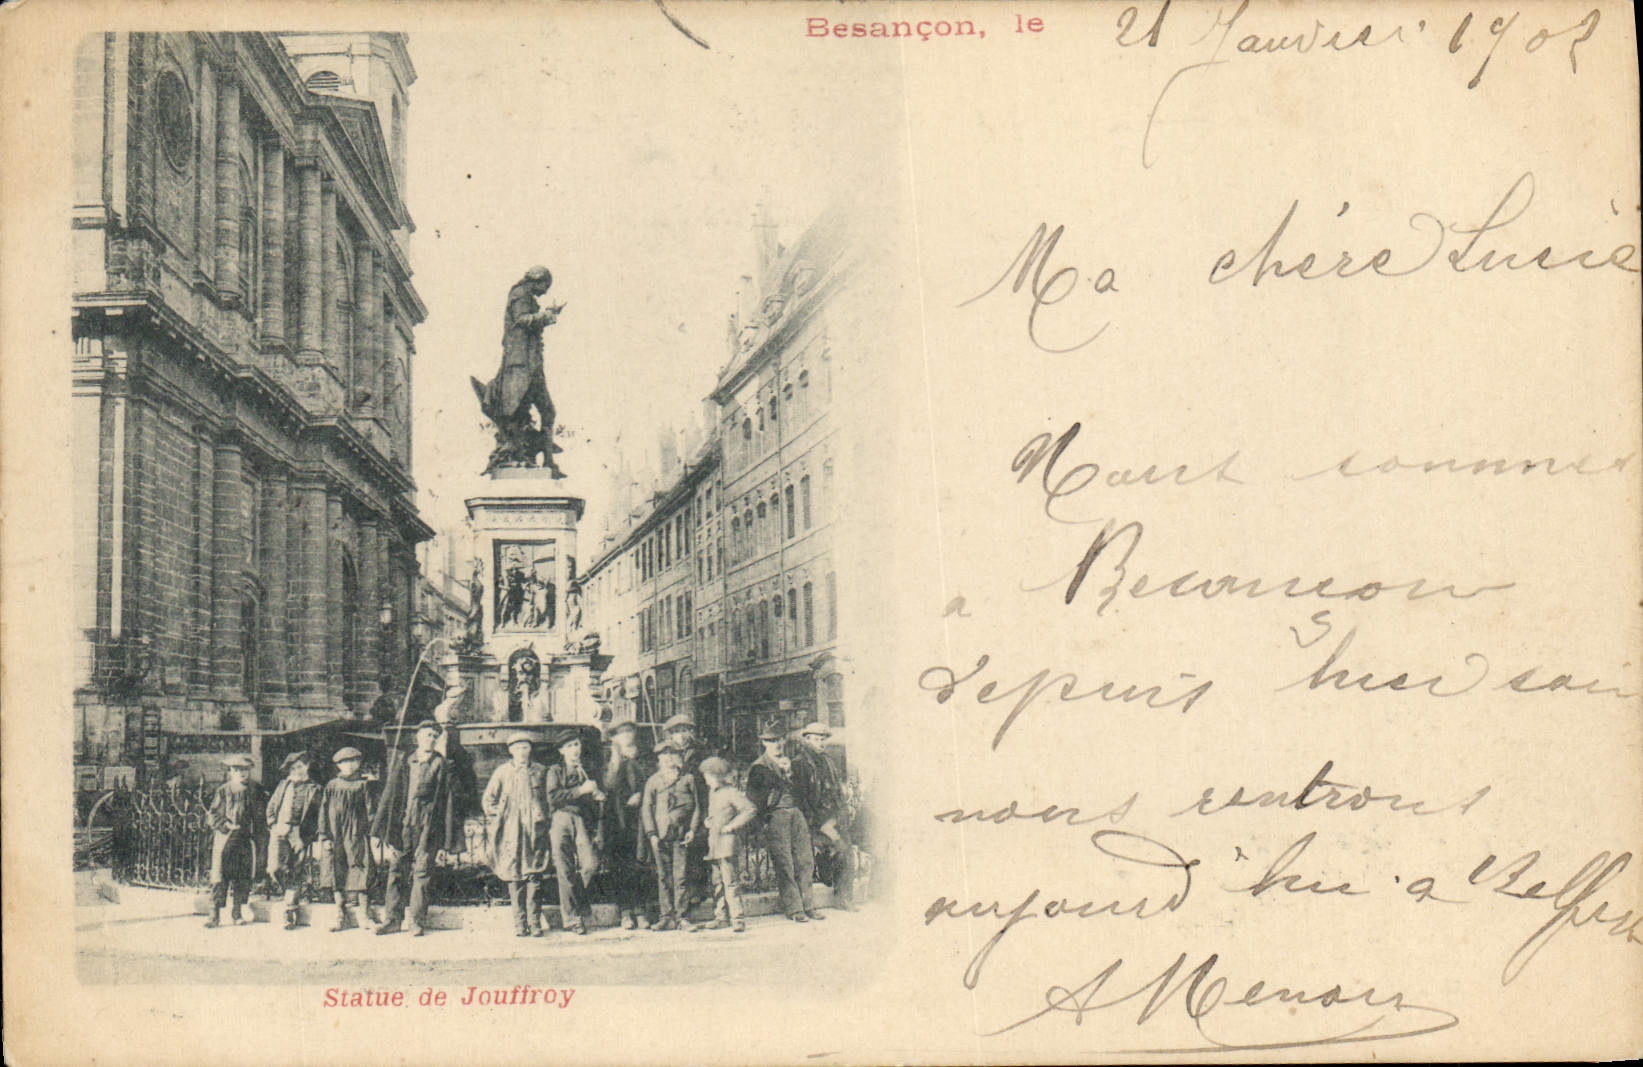 Besançon, le 21 Janvier 1902
Ma chère Lucie
Nous sommes
a Besancon
depuis hier soir
nous rentrons
aujourd'hui a Belfort
A Menou
Statue de Jouffroy